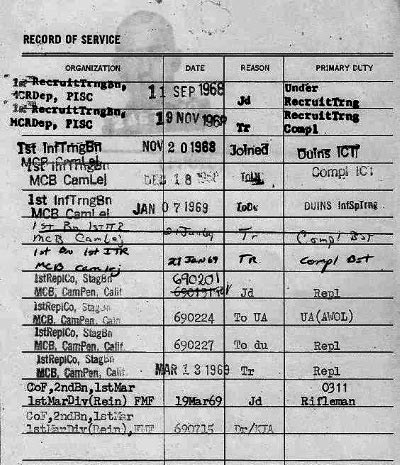 RECORD OF SERVICE
ORGANIZATION DATE REASON PRIMARY DUTY
1st RecruitTrngBn, Under
MCRDep, PISC 11 SEP 1968 Jd RecruitTrng
1st RecruitTrngBn, RecruitTrng
MCRDep, PISC 19 NOV 1968 Tr Compl
1St InfTrngBn NOV 20 1968 Joined DuIns ICT
MCB CamLej
1st InfTrngBn
MCB CamLej DEC 18 1968 Compl ICT
1st InfTrngBn
MCB CamLej JAN 07 1969 DUINS InfSpTrng
1st Bn 1st ITR
MCB Camlej Tr Compl Bst
1st Bn 1st ITR
MCB Camlej 21 JAN69 TR Compl Bst
1stReplCo, StagBn 690201
MCB, CamPen, Calif Jd Repl
1stReplCo, StagBn
MCB, CamPen, Calif 690224 To UA UA(AWOL)
1stReplCo, StagBn
MCB, CamPen, Calif 690227 To du Repl
1stReplCo, StagBn
MCB, CamPen, Calif. MAR 13 1969 Tr Repl
CoF,2ndBn,1stMar 0311
1stMarDiv(Rein) FMF 19Mar69 Jd Rifleman
CoF,2ndBn,1stMar
1stMarDiv(Rein),FMF 690715 Dr/KIA